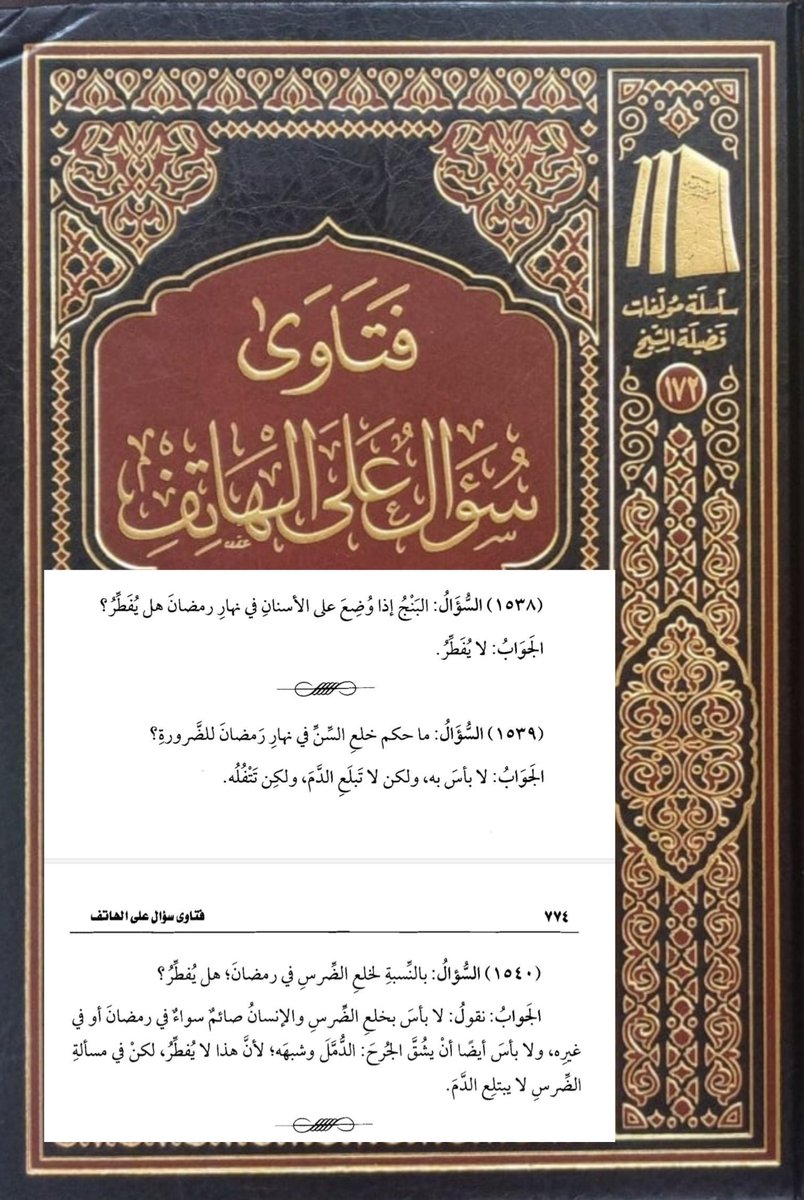 فَتَاوَى
سُؤَال عَلَى الهَاتِفِ
سلسلة مؤلفات
فضيلة الشيخ
١٧٢
(١٥٣٨) السُّؤَالُ: البَنْجُ إذا وُضِعَ على الأسنانِ في نهارِ رمضانَ هل يُفَطِّرُ؟
الجَوَابُ: لا يُفَطِّرُ.
(١٥٣٩) السُّؤَالُ: ما حكم خلعِ السِّنِّ في نهارِ رَمضانَ للضَّرورةِ؟
الجَوَابُ: لا بأسَ به، ولكن لا تَبلَعِ الدَّمَ، ولكِن تَتْفُلُه.
٧٧٤
فتاوى سؤال على الهاتف
(١٥٤٠) السُّؤالُ: بالنِّسبةِ لخلعِ الضِّرسِ في رمضانَ؛ هل يُفطِّرُ؟
الجَوابُ: نقولُ: لا بأسَ بخلعِ الضِّرسِ والإنسانُ صائمٌ سواءٌ في رمضانَ أو في
غيرِه، ولا بأسَ أيضًا أنْ يشُقَّ الجُرحَ: الدُّمَّلَ وشبهَه؛ لأنَّ هذا لا يُفطِّرُ، لكنْ في مسألةِ
الضِّرسِ لا يبتلِع الدَّمَ.